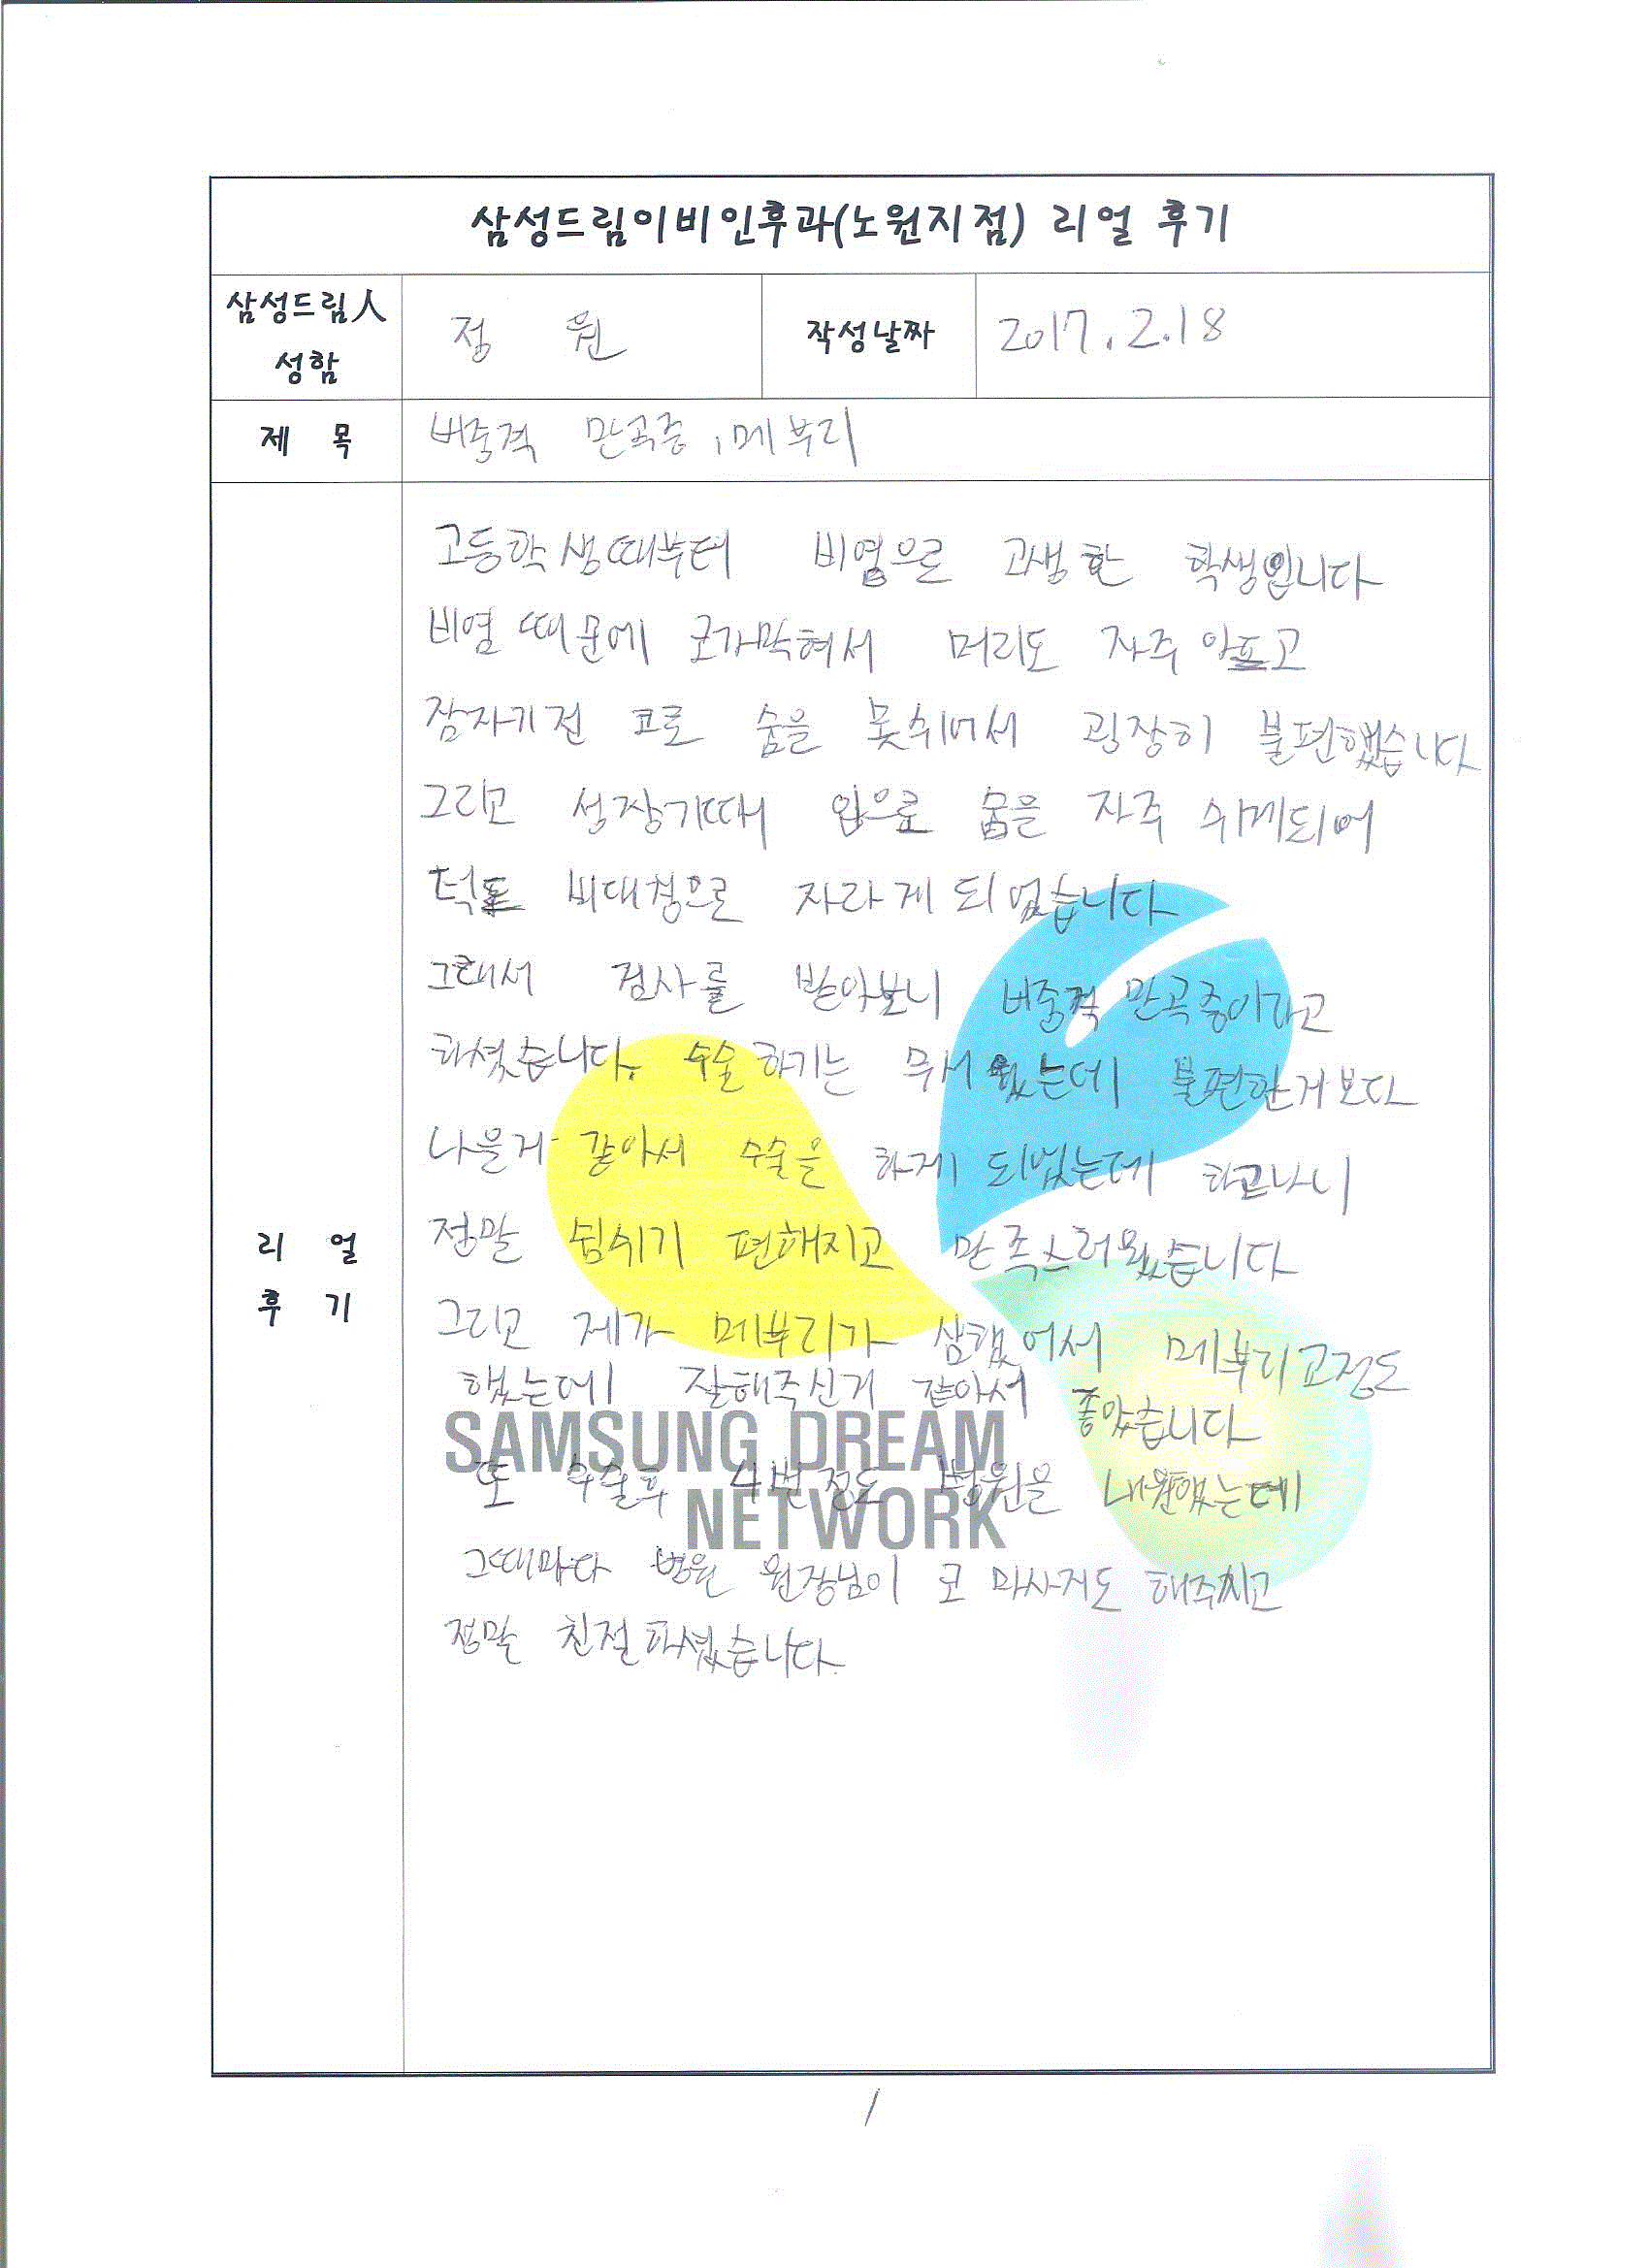 삼성드림이비인후과(노원지점) 리얼 후기
삼성드림人
성함
정 원
작성날짜
2017.2.18
제 목
비중격 만곡증, 메부리
고등학생때부터 비염으로 고생한 학생입니다
비염 때문에 코가막혀서 머리도 자주 아프고
잠자기전 코로 숨을 못쉬어서 굉장히 불편했습니다
그리고 성장기때 입으로 숨을 자주 쉬게되어
턱도 비대칭으로 자라게 되었습니다
그래서 검사를 받아보니 비중격 만곡증이라고
하셨습니다. 수술하기는 무서웠는데 불편한거보다
나을거 같아서 수술을 하게 되었는데 하고나니
정말 쉼쉬기 편해지고 만족스러웠습니다
리 얼
후 기
그리고 제가 메부리가 심했어서 메부리교정도
했는데 잘해주신거 같아서 좋았습니다
SAMSUNG DREAM
또 수술후 4번정도 병원을 내원했는데
NETWORK
그때마다 병원 원장님이 코 마사지도 해주시고
정말 친절하셨습니다.
1